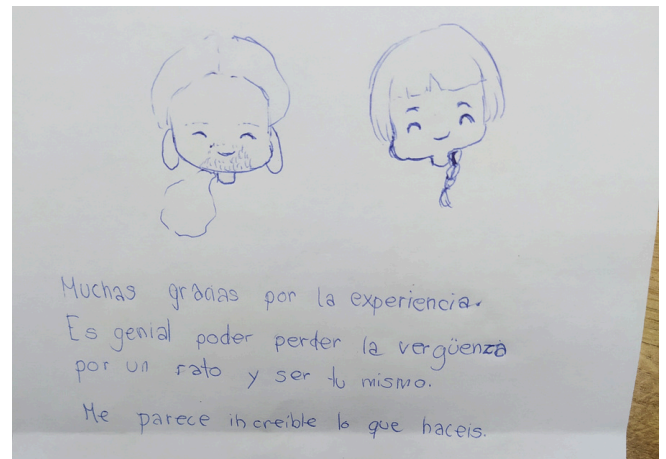 Muchas gracias por la experiencia.
Es genial poder perder la vergüenza
por un rato y ser tu mismo.
Me parece increible lo que haceis.